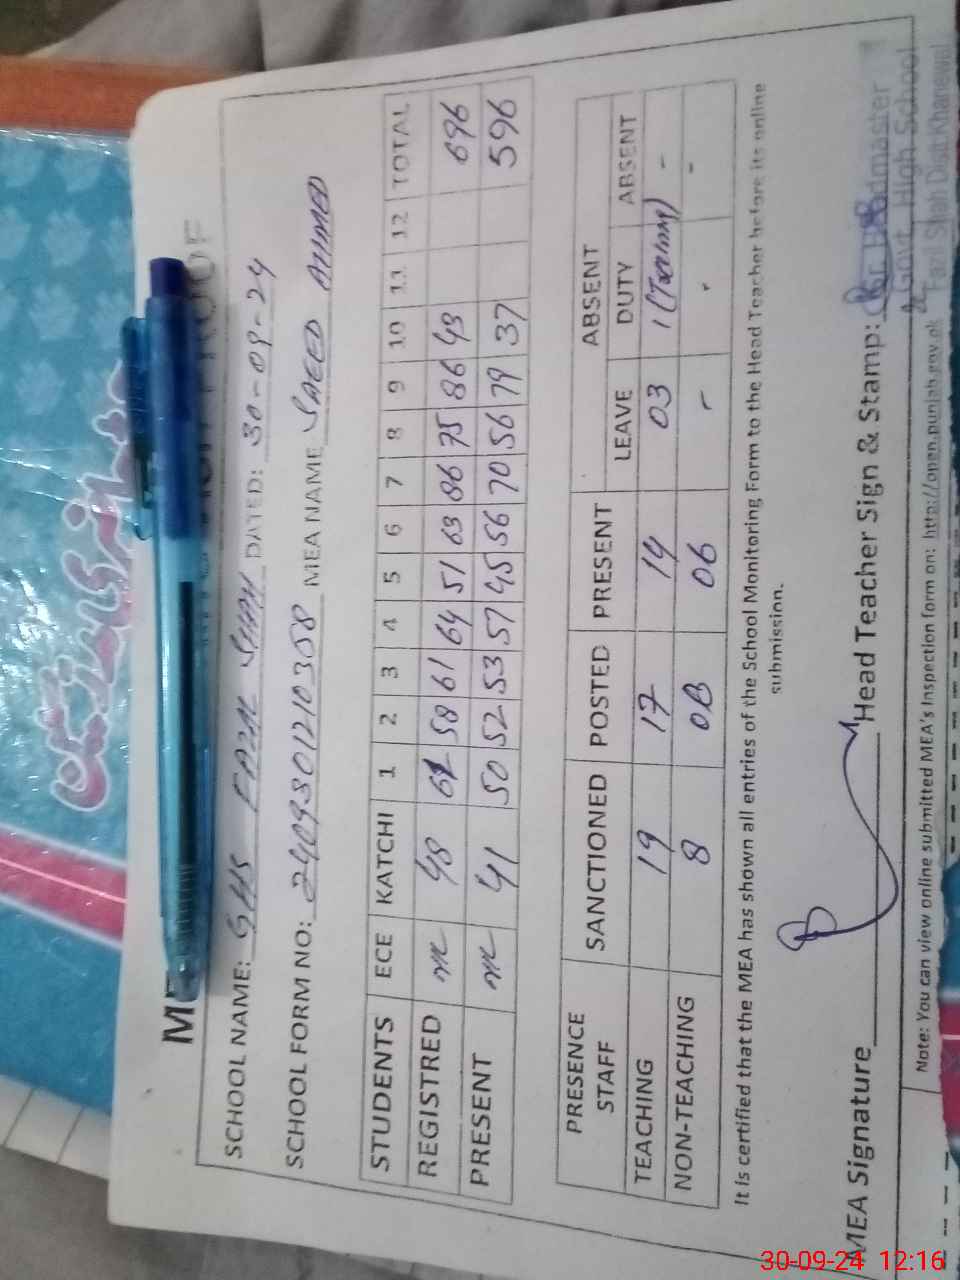 SCHOOL NAME: GHS FAZAL SHAH DATED: 30-09-24
SCHOOL FORM NO: 2409301210358 MEA NAME SAEED AHMED
STUDENTS ECE KATCHI 1 2 3 4 5 6 7 8 9 10 11 12 TOTAL
REGISTRED 48 61 64 51 63 86 75 86 43 696
PRESENT 41 50 52 53 57 45 56 70 56 79 37 596
PRESENCE STAFF SANCTIONED POSTED PRESENT ABSENT
LEAVE DUTY ABSENT
TEACHING 19 17 14 03 1 -
NON-TEACHING 8 08 06 - - -
It is certified that the MEA has shown all entries of the School Monitoring Form to the Head Teacher before its online
submission.
MEA Signature Head Teacher Sign & Stamp:
Headmaster
Govt. High School
Fazil Shah Distt Khanewal
Note: You can view online submitted MEA's Inspection form on: http://open.punjab.gov.pk
30-09-24 12:16